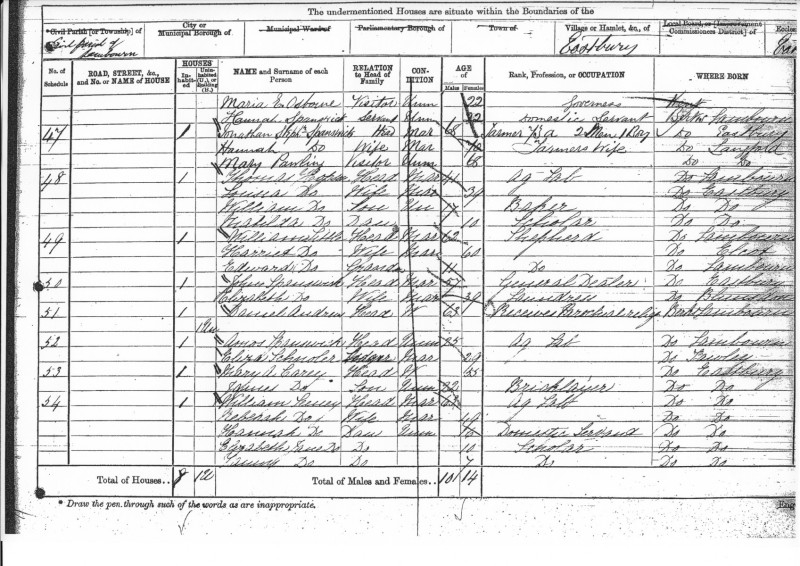 The undermentioned Houses are situate within the Boundaries of the
Civil Parish [or Township] of
City or Municipal Borough of
Municipal Ward of
Parliamentary Borough of
Town of
Village or Hamlet, &c., of
Local Board, or [Improvement Commissioners District] of
Eccles
Civil parish of Lambourn
Eastbury
No. of Schedule
ROAD, STREET, &c., and No. or NAME of HOUSE
HOUSES
In-habit-ed
Unin-habited (U.), or Building (B.)
NAME and Surname of each Person
RELATION to Head of Family
CON-DITION
AGE of
Males
Females
Rank, Profession, or OCCUPATION
WHERE BORN
Maria E Osborne Visitor Unm 22 Governess
Hannah Spanswick Servant Unm 22 Domestic Servant Berks Lambourn
47 1 Jonathan Spanswick Head Mar 68 Farmer 2 Men 1 Boy Do Eastbury
Hannah Do Wife Mar 70 Farmers Wife Do
Mary Visitor Unm 68 Do Do
48 1 Thomas Head Mar 41 Ag Lab Do Lambourn
Louisa Do Wife Mar 39 Do Eastbury
William Do Son Un 17 Baker Do Do
Matilda Do Daur 10 Scholar Do Do
49 1 William Head Mar 62 Shepherd Do Lambourn
Harriet Do Wife Mar 60 Do Elcot
Edward Do Grandson 11 Do Do Lambourn
50 1 John Spanswick Head Mar 57 General Dealer Do Eastbury
Elizabeth Do Wife Mar 59 Laundress Do
51 1 Daniel Andrew Head W 63 Receives Parochial relief Berks Lambourn
1 U
52 1 Amos Spanswick Head Unm 25 Ag Lab Do Lambourn
Eliza Lodger Mar 29 Do Fawley
53 1 Mary A. Carey Head W 65 Do Eastbury
James Do Son Unm 22 Bricklayer Do Do
54 1 William Head Mar 63 Ag Lab Do Do
Rebekah Do Wife Mar Do Do
Hannah Do Daur Unm 16 Domestic Servant Do Do
Elizabeth Jane Do Do 10 Scholar Do Do
Fanny Do Do 7 Do Do Do
Total of Houses.. 8 1 U
Total of Males and Females.. 10 14
* Draw the pen through such of the words as are inappropriate.
Eng